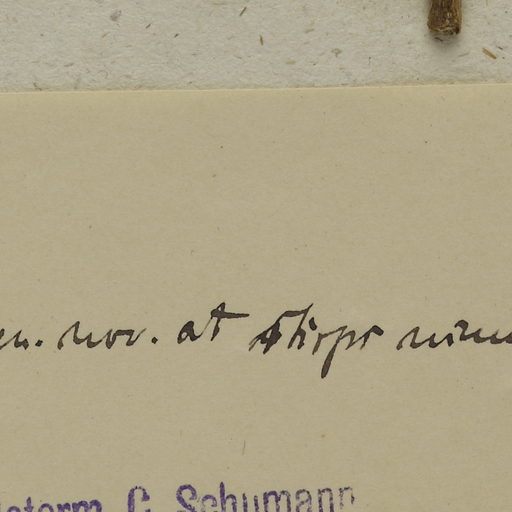 en. nov. at stirps nimi
determ. C. Schumann